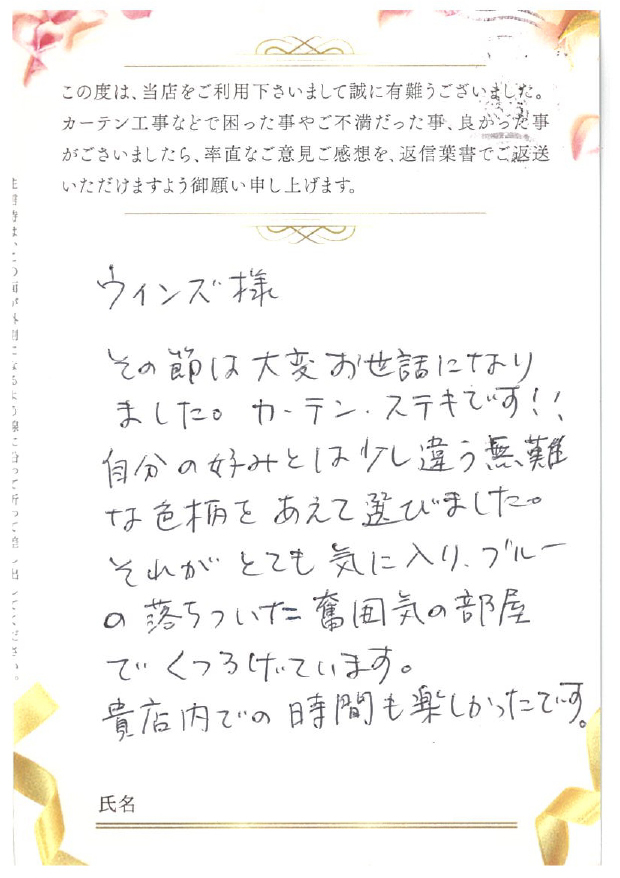 この度は、当店をご利用下さいまして誠に有難うございました。
カーテン工事などで困った事やご不満だった事、良かった事
がございましたら、率直なご意見ご感想を、返信葉書でご返送
いただけますよう御願い申し上げます。
ウィンズ様
その節は大変お世話になり
ました。カーテン、ステキです!!
自分の好みとは少し違う無難
な色柄をあえて選びました。
それがとても気に入り、ブルー
の落ちついた奮囲気の部屋
でくつろげています。
貴店内での時間も楽しかったです。
氏名